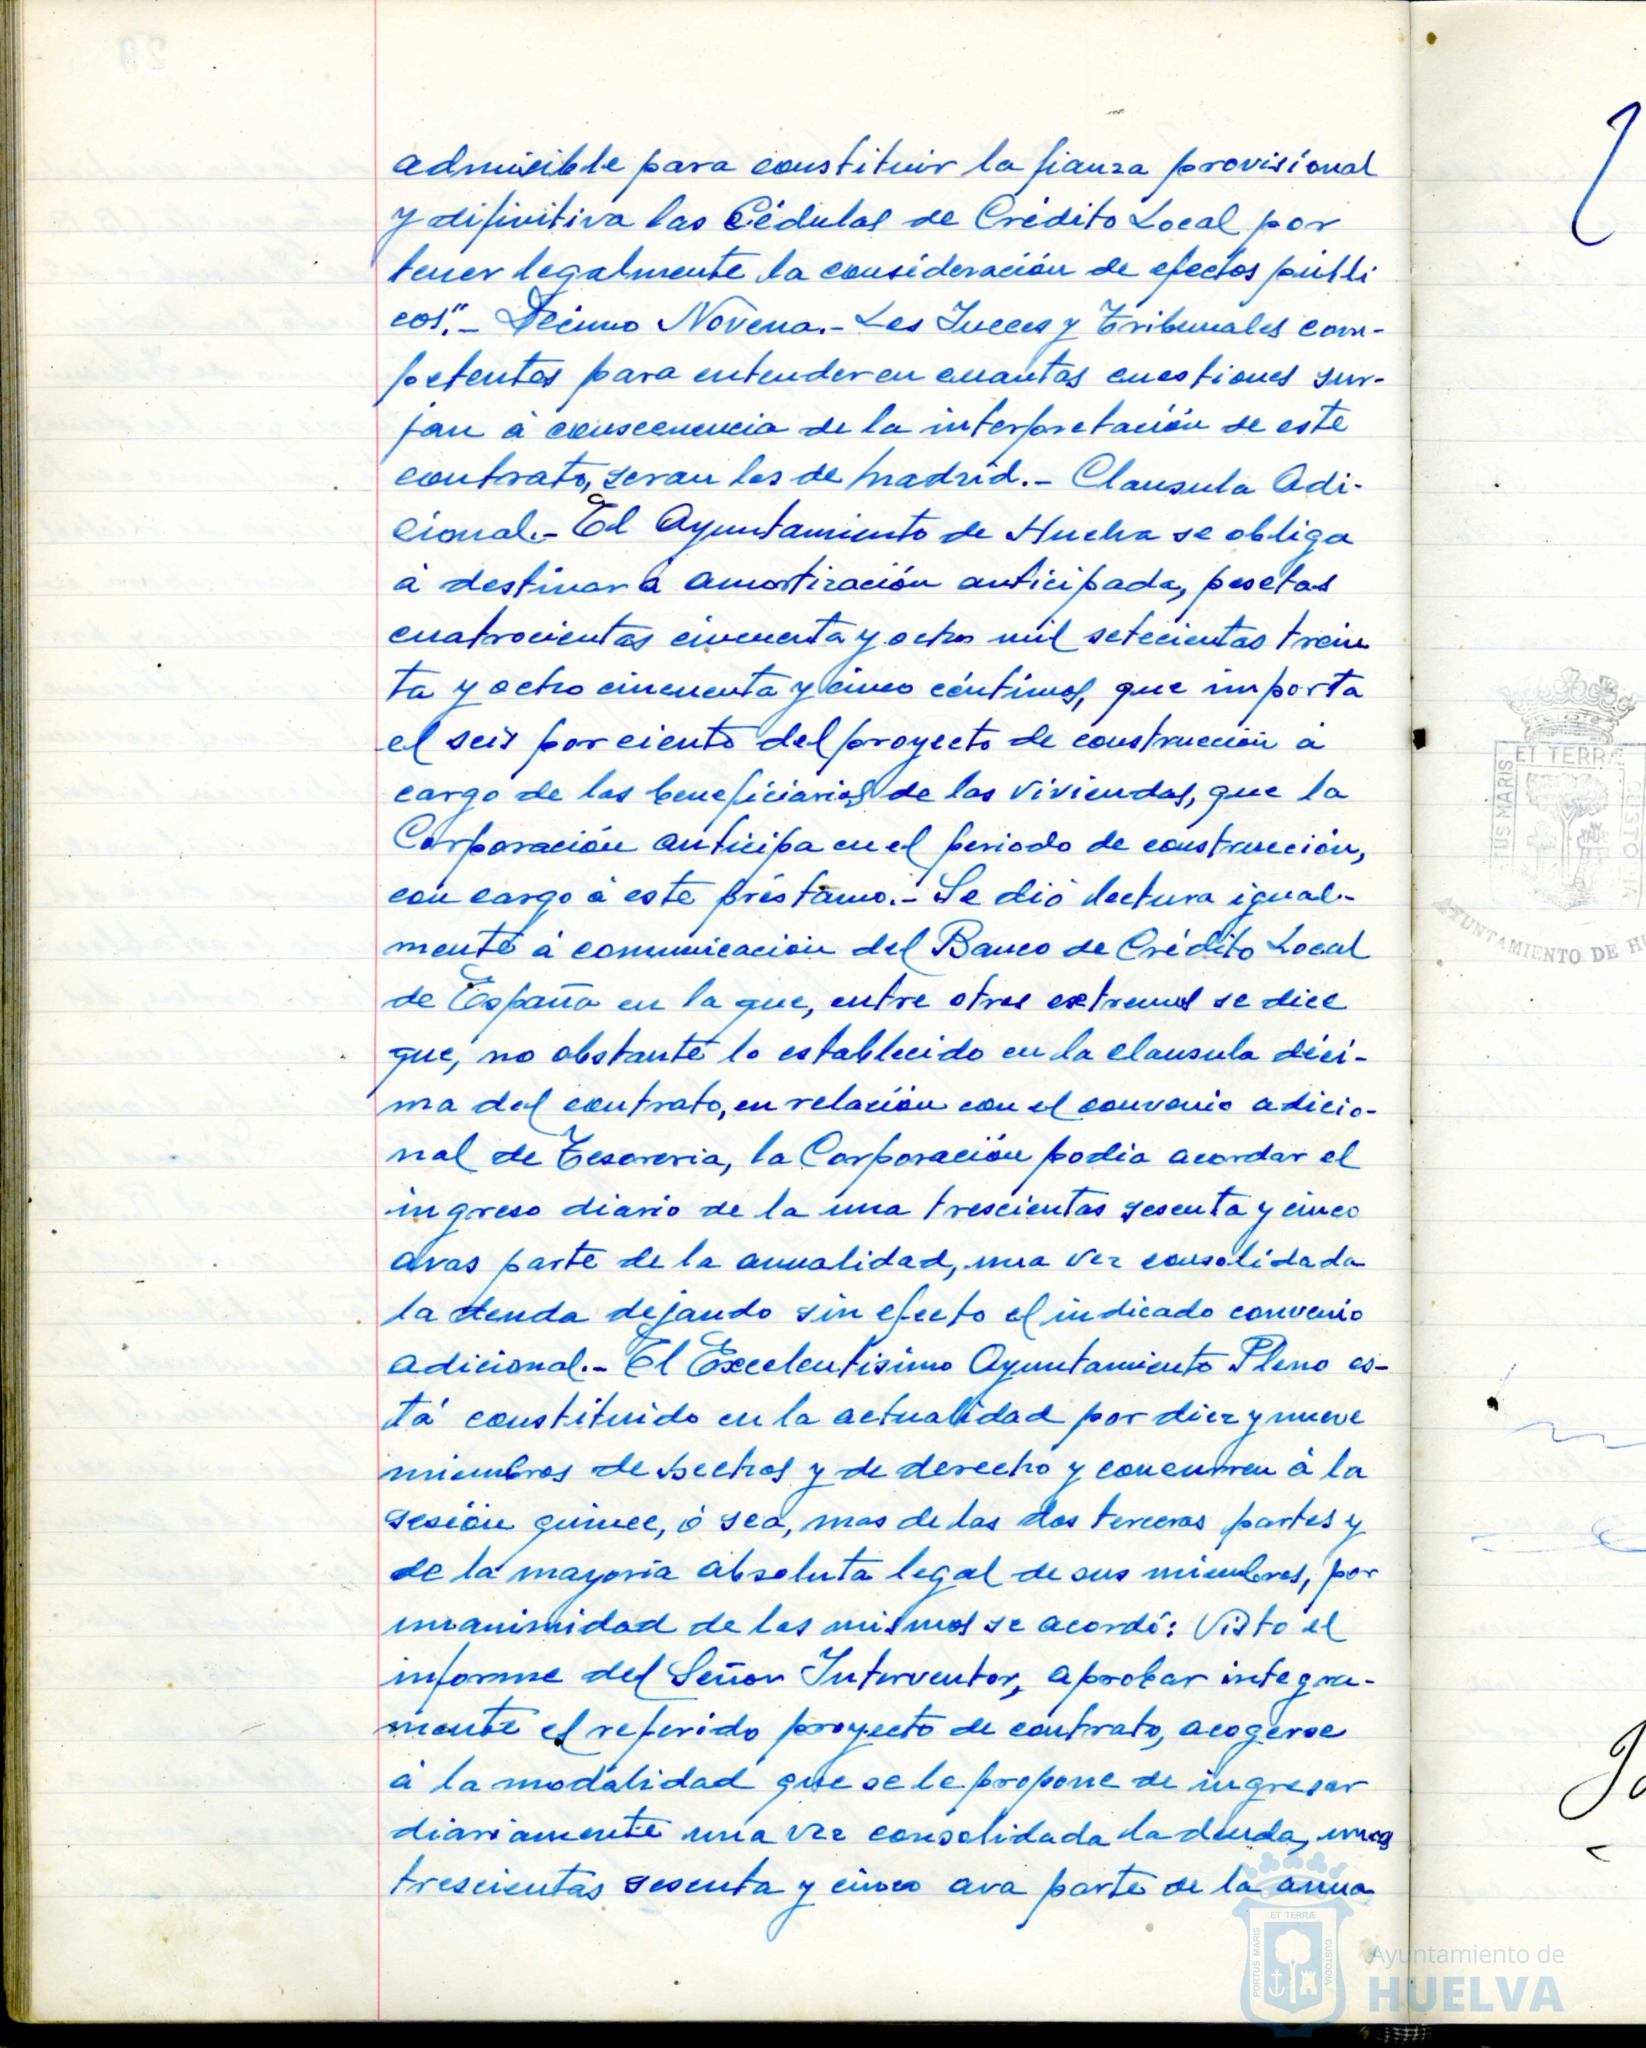 admisible para constituir la fianza provisional
y difinitiva las Cédulas de Crédito Local por
tener legalmente la consideración de efectos públi
cos".- Décimo Novena.- Los Jueces y Tribunales com-
petentes para entender en cuantas cuestiones sur-
jan á consecuencia de la interpretación de este
contrato, seran los de Madrid.- Clausula Adi-
cional.- El Ayuntamiento de Huelva se obliga
á destinar a amortización anticipada, pesetas
cuatrocientas cincuenta y ocho mil setecientas trein
ta y ocho cincuenta y cinco céntimos, que importa
el seis por ciento del proyecto de construcción á
cargo de los beneficiarios de las viviendas, que la
Corporación anticipa en el periodo de construcción,
con cargo á este préstamo.- Se dió lectura igual-
mente á comunicación del Banco de Crédito Local
de España en la que, entre otros extremos se dice
que, no obstante lo establecido en la clausula déci-
ma del contrato, en relación con el convenio adicio-
nal de Tesoreria, la Corporación podia acordar el
ingreso diario de la una trescientas sesenta y cinco
avas parte de la anualidad, una vez consolidada
la deuda dejando sin efecto el indicado convenio
adicional.- El Excelentisimo Ayuntamiento Pleno es-
tá constituido en la actualidad por diez y nueve
miembros de hechos y de derecho y concurren á la
sesión quince, ó sea, mas de las dos terceras partes y
de la mayoría absoluta legal de sus miembros, por
unanimidad de los mismos se acordó: Visto el
informe del Señor Interventor, aprobar integra-
mente el referido proyecto de contrato, acogerse
á la modalidad que se le propone de ingresar
diariamente una vez consolidada la deuda, una
trescientas sesenta y cinco ava parte de la anua
ET TERRA
CUSTODIA
AYUNTAMIENTO DE HU
PORTUS MARIS
ET TERRÆ
CUSTODIA
Ayuntamiento de
HUELVA